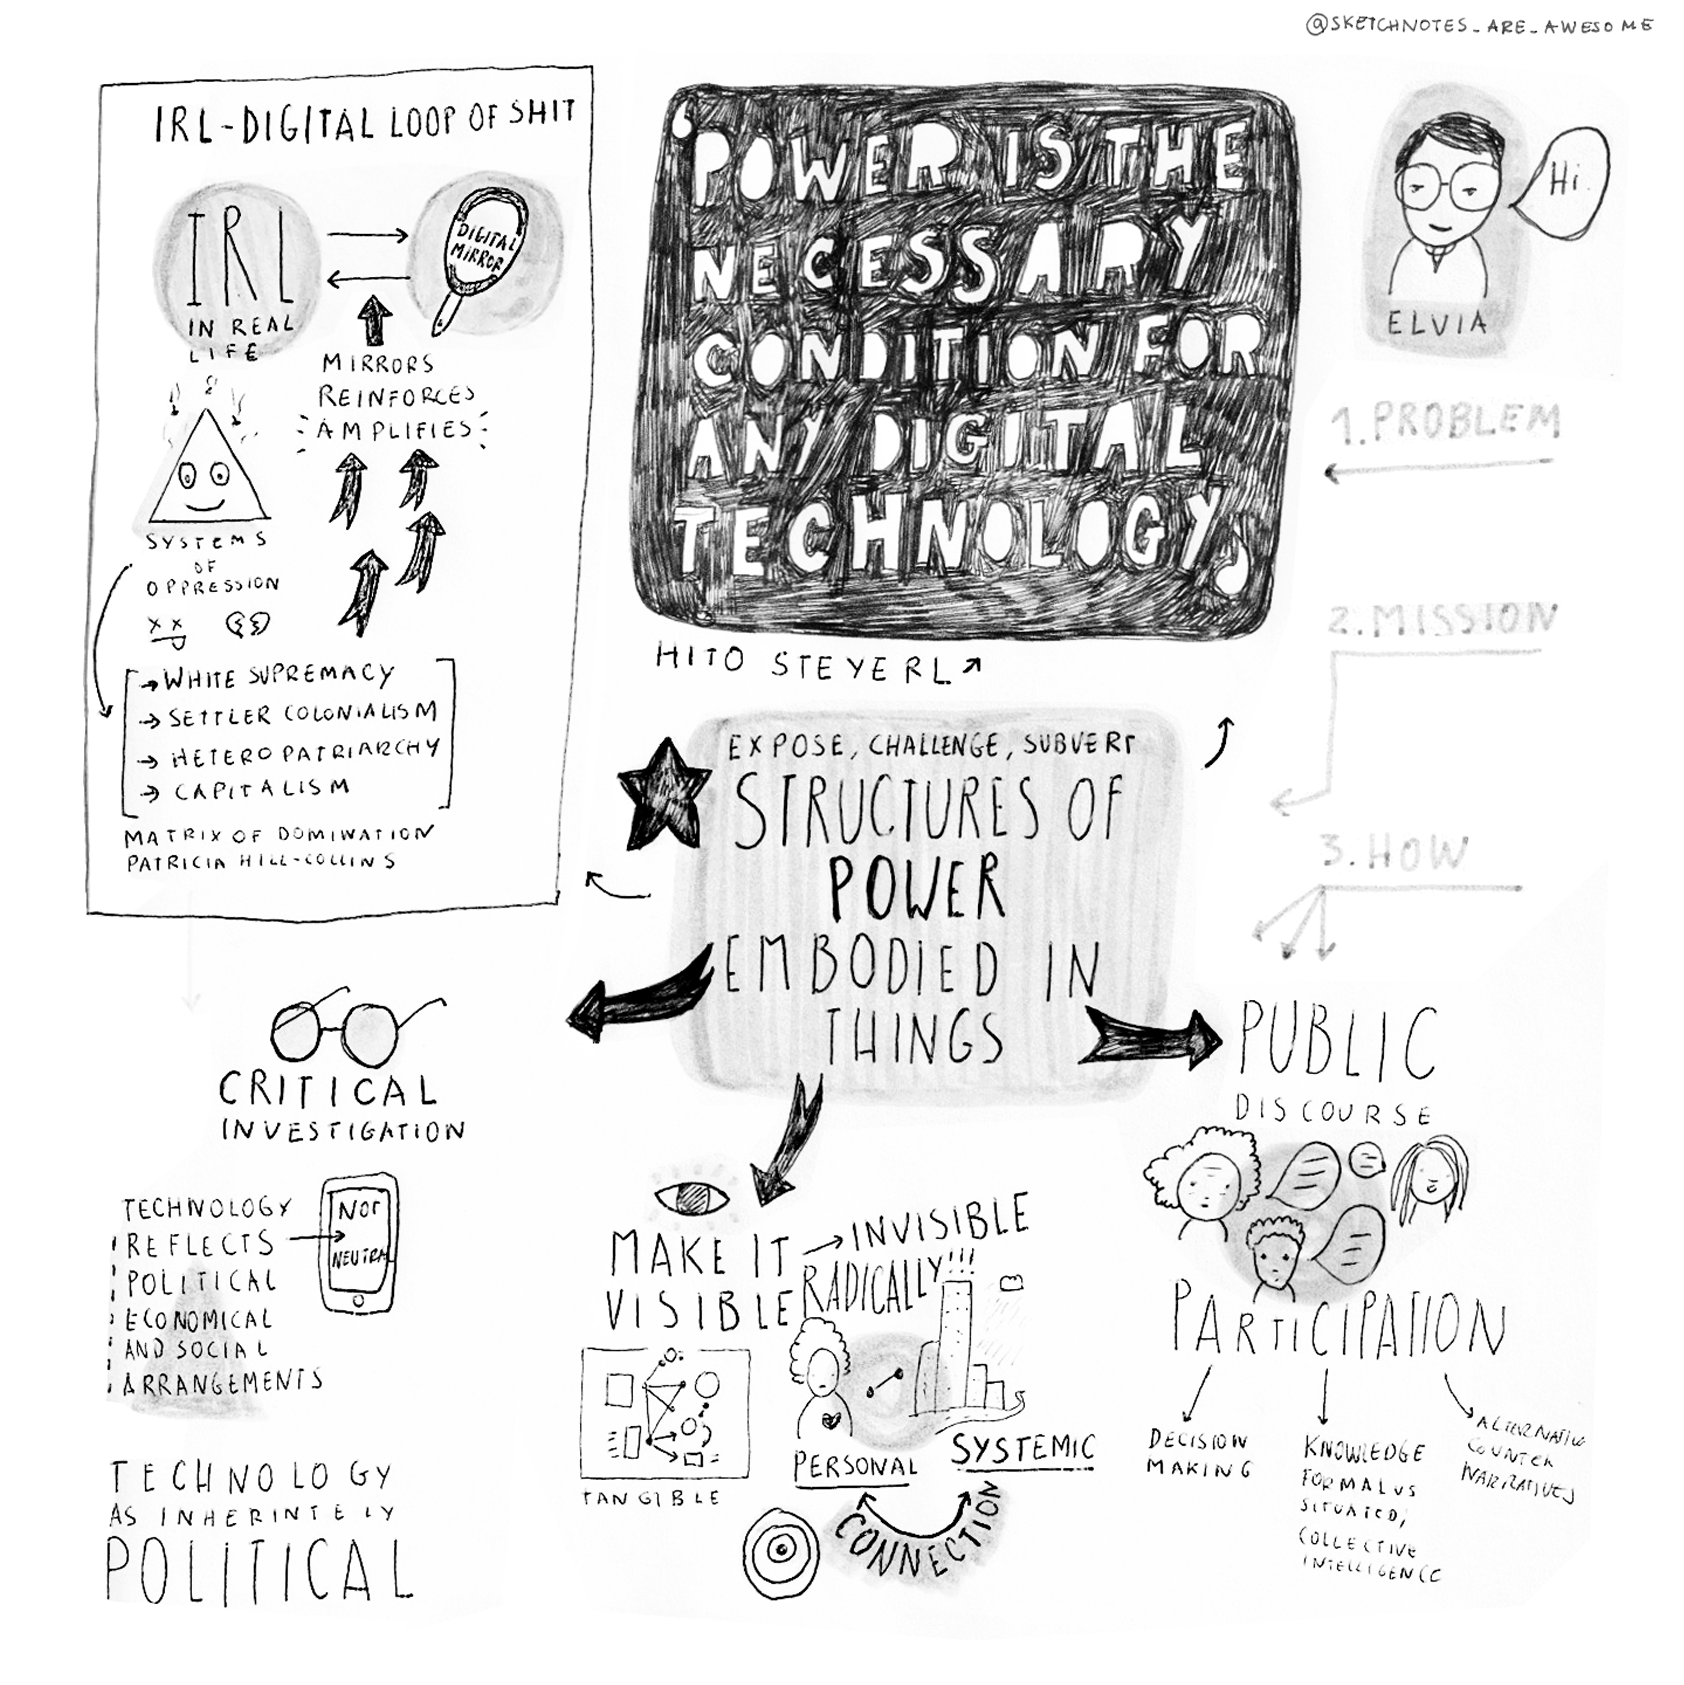 @SKETCHNOTES_ARE_AWESOME
IRL-DIGITAL LOOP OF SHIT
IRL
IN REAL
LIFE
DIGITAL
MIRROR
MIRRORS
REINFORCES
AMPLIFIES
SYSTEMS
OF
OPPRESSION
→ WHITE SUPREMACY
→ SETTLER COLONIALISM
→ HETEROPATRIARCHY
→ CAPITALISM
MATRIX OF DOMINATION
PATRICIA HILL-COLLINS
'POWER IS THE
NECESSARY
CONDITION FOR
ANY DIGITAL
TECHNOLOGY,
HITO STEYERL
Hi
ELVIA
1. PROBLEM
2. MISSION
3. HOW
EXPOSE, CHALLENGE, SUBVERT
STRUCTURES OF
POWER
EMBODIED IN
THINGS
CRITICAL
INVESTIGATION
TECHNOLOGY
REFLECTS
POLITICAL
ECONOMICAL
AND SOCIAL
ARRANGEMENTS
NOT
NEUTRAL
TECHNOLOGY
AS INHERINTELY
POLITICAL
MAKE IT
VISIBLE
→ INVISIBLE
RADICALLY!!!
TANGIBLE
PERSONAL
SYSTEMIC
CONNECTION
PUBLIC
DISCOURSE
PARTICIPATION
DECISION
MAKING
KNOWLEDGE
FORMAL VS
SITUATED,
COLLECTIVE
INTELLIGENCE
ALTERNATIVE
COUNTER
NARRATIVES